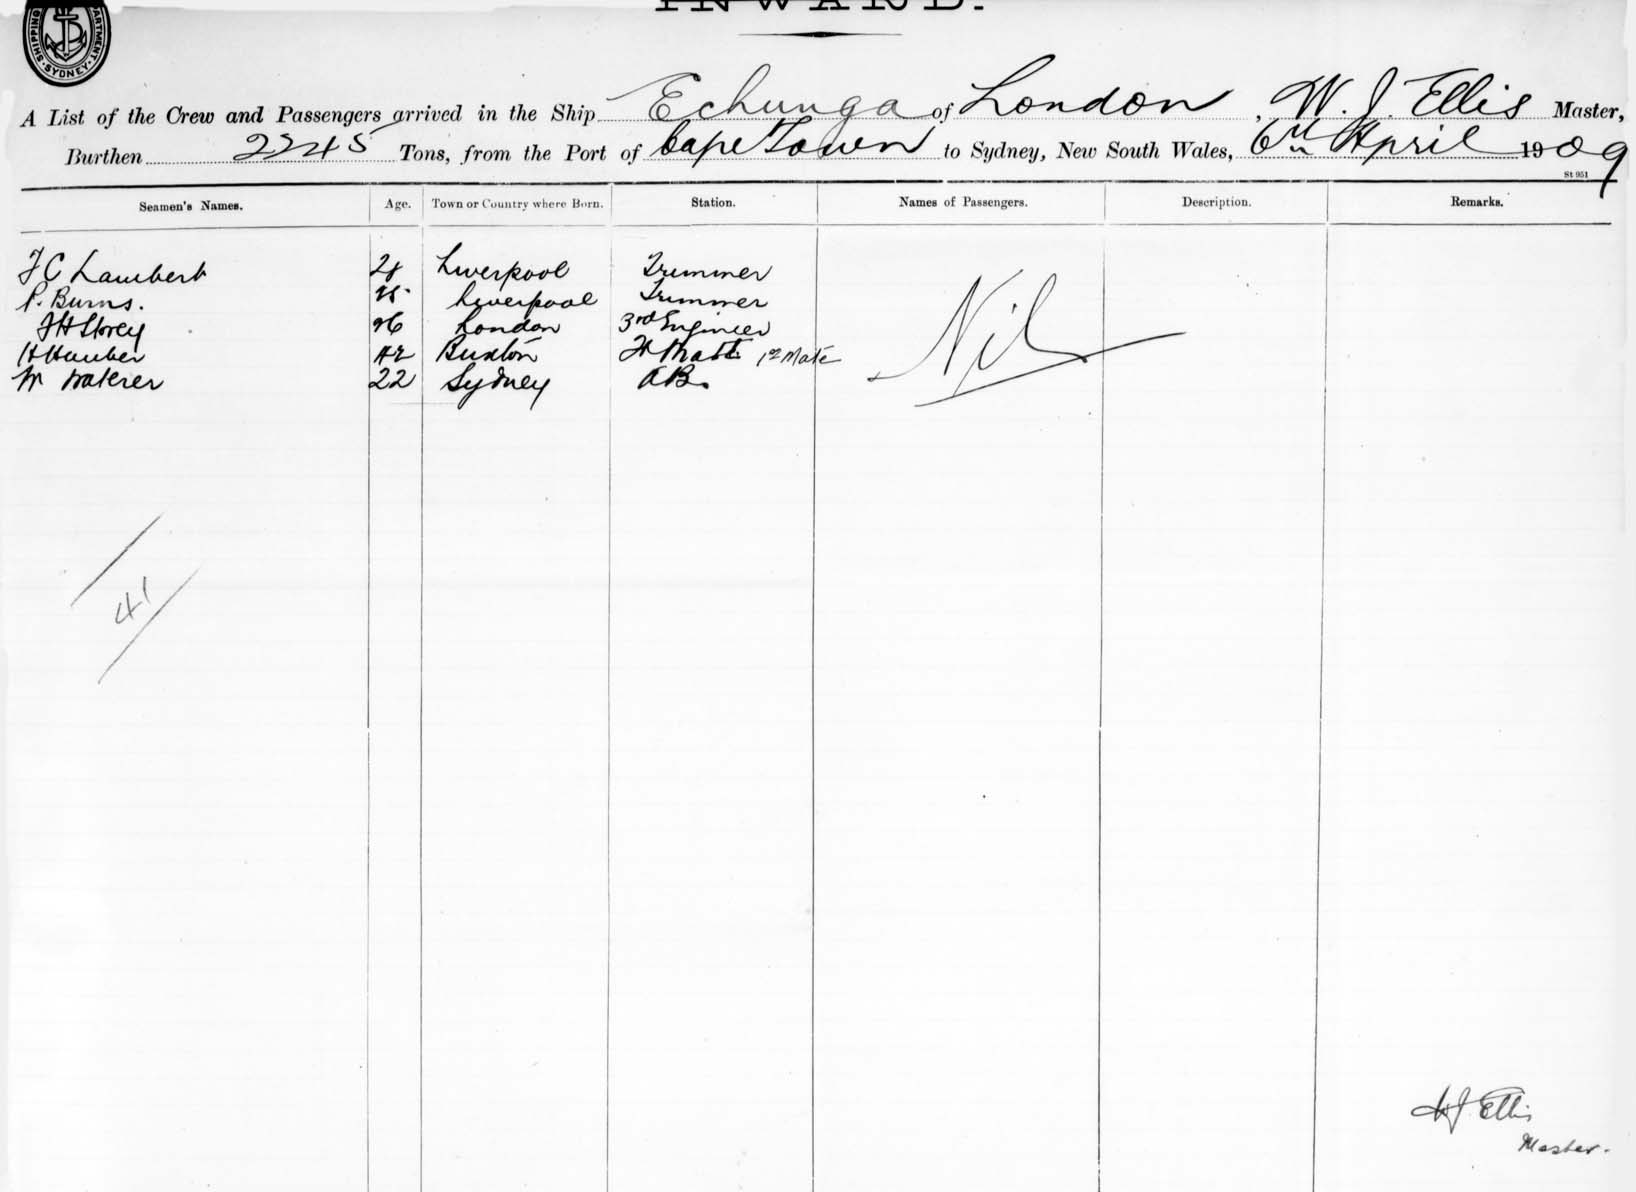 INWARD.
SHIPPING DEPARTMENT SYDNEY
A List of the Crew and Passengers arrived in the Ship Echunga of London, W. J. Ellis Master,
Burthen 2245 Tons, from the Port of Cape Town to Sydney, New South Wales, 6th April 1909
St 951
Seamen's Names. Age. Town or Country where Born. Station. Names of Passengers. Description. Remarks.
J C Lambert Liverpool Trimmer
P. Burns. Liverpool Trimmer
J H Storey 26 London 3rd Engineer
H 42 Buxton 1st Mate
W Waterer 22 Sydney AB.
Nil
41
W J Ellis
Master.